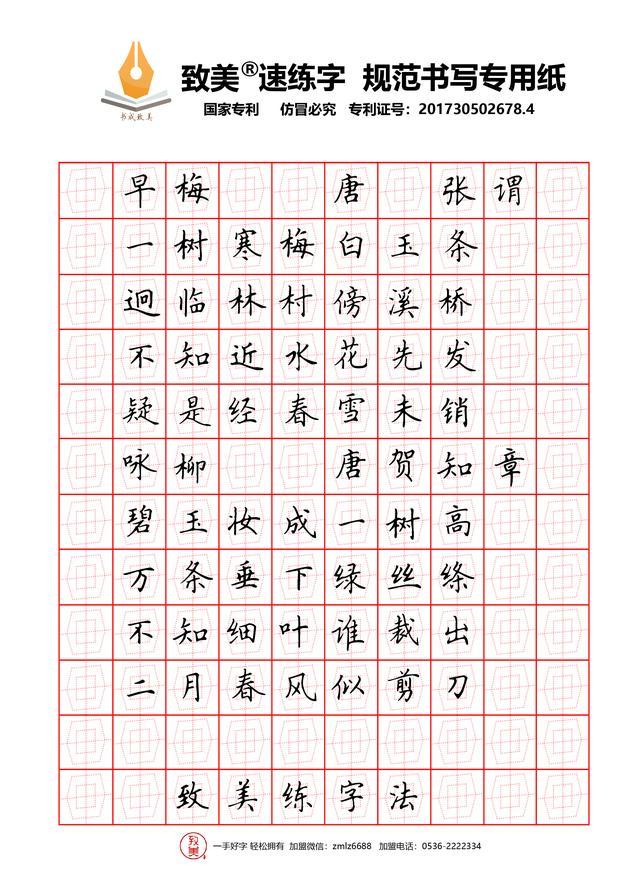 致美®速练字 规范书写专用纸
书成致美
国家专利 仿冒必究 专利证号：201730502678.4
早梅 唐 张谓
一树寒梅白玉条
迥临林村傍溪桥
不知近水花先发
疑是经春雪未销
咏柳 唐贺知章
碧玉妆成一树高
万条垂下绿丝绦
不知细叶谁裁出
二月春风似剪刀
致美练字法
致美 一手好字 轻松拥有 加盟微信：zmlz6688 加盟电话：0536-2222334